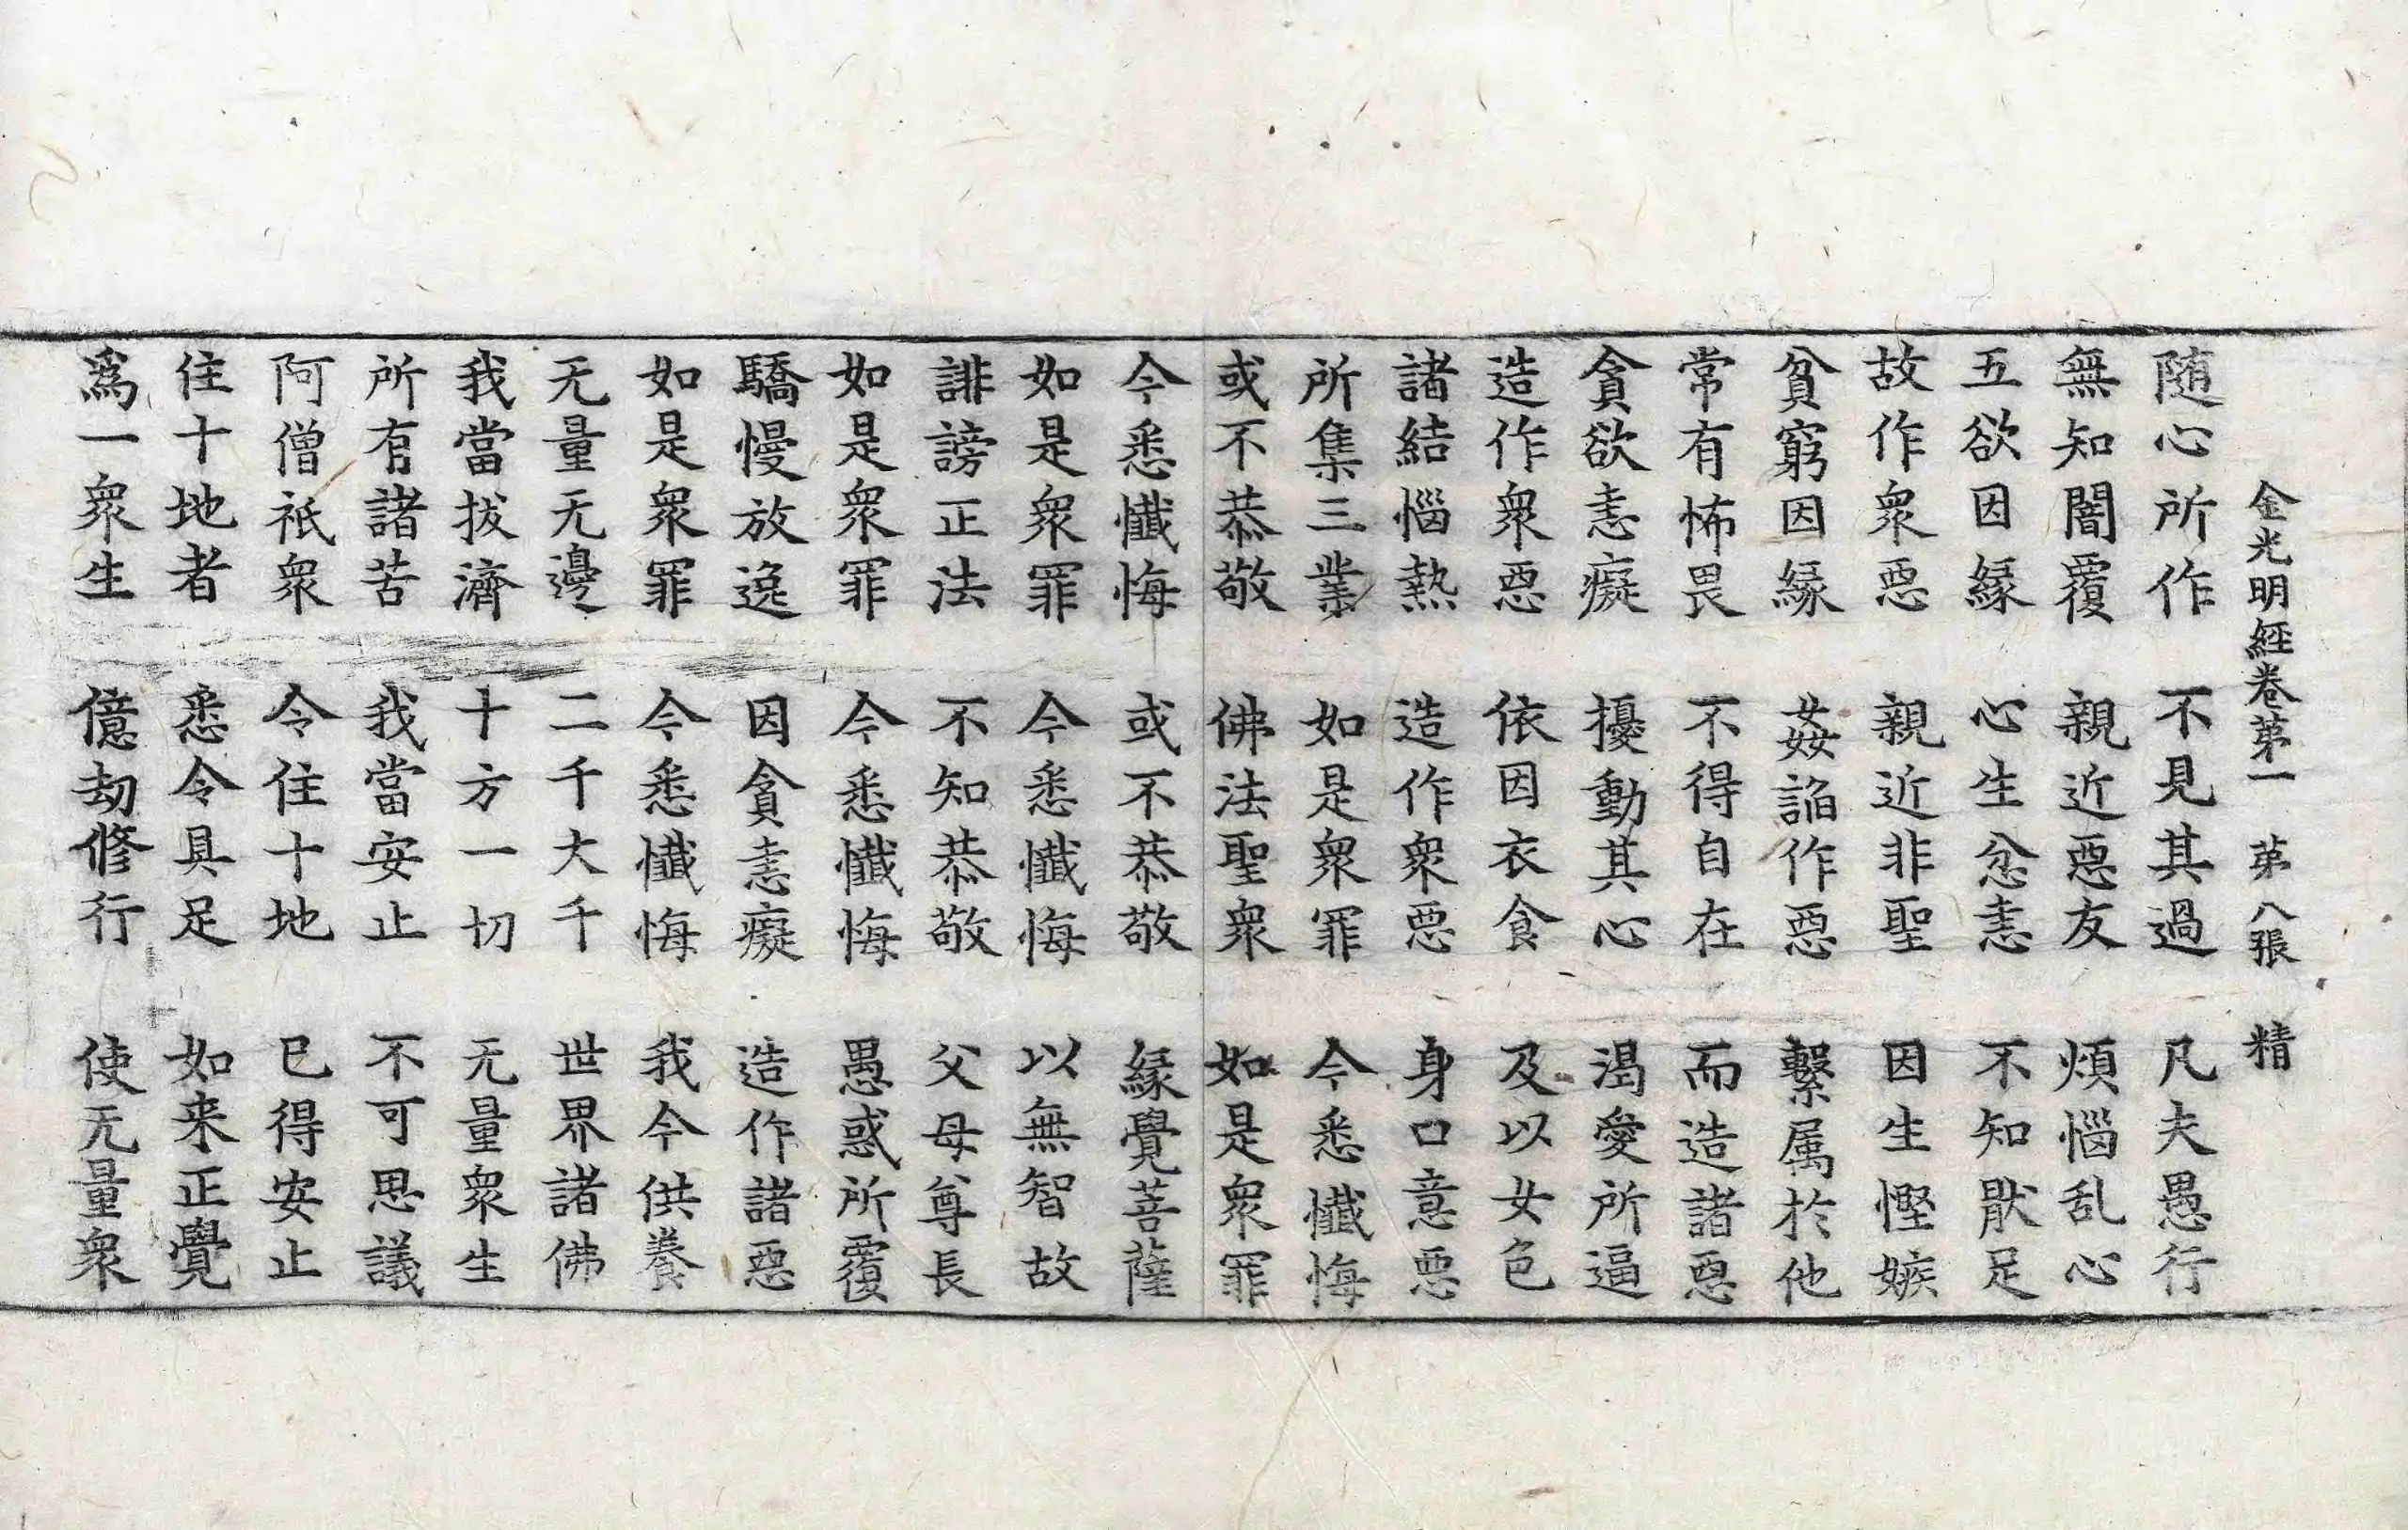 金光明經卷第一　第八張　精
随心所作　不見其過　凡夫愚行
無知闇覆　親近惡友　煩惱乱心
五欲因緣　心生忿恚　不知猒足
故作衆惡　親近非聖　因生慳嫉
貧窮因緣　姦諂作惡　繫属於他
常有怖畏　不得自在　而造諸惡
貪欲恚癡　擾動其心　渴愛所逼
造作衆惡　依因衣食　及以女色
諸結惱熱　造作衆惡　身口意惡
所集三業　如是衆罪　今悉懺悔
或不恭敬　佛法聖衆　如是衆罪
今悉懺悔　或不恭敬　緣覺菩薩
如是衆罪　今悉懺悔　以無智故
誹謗正法　不知恭敬　父母尊長
如是衆罪　今悉懺悔　愚惑所覆
驕慢放逸　因貪恚癡　造作諸惡
如是衆罪　今悉懺悔　我今供養
无量无邊　二千大千　世界諸佛
我當拔濟　十方一切　无量衆生
所有諸苦　我當安止　不可思議
阿僧祇衆　令住十地　已得安止
住十地者　悉令具足　如来正覺
爲一衆生　億劫修行　使无量衆